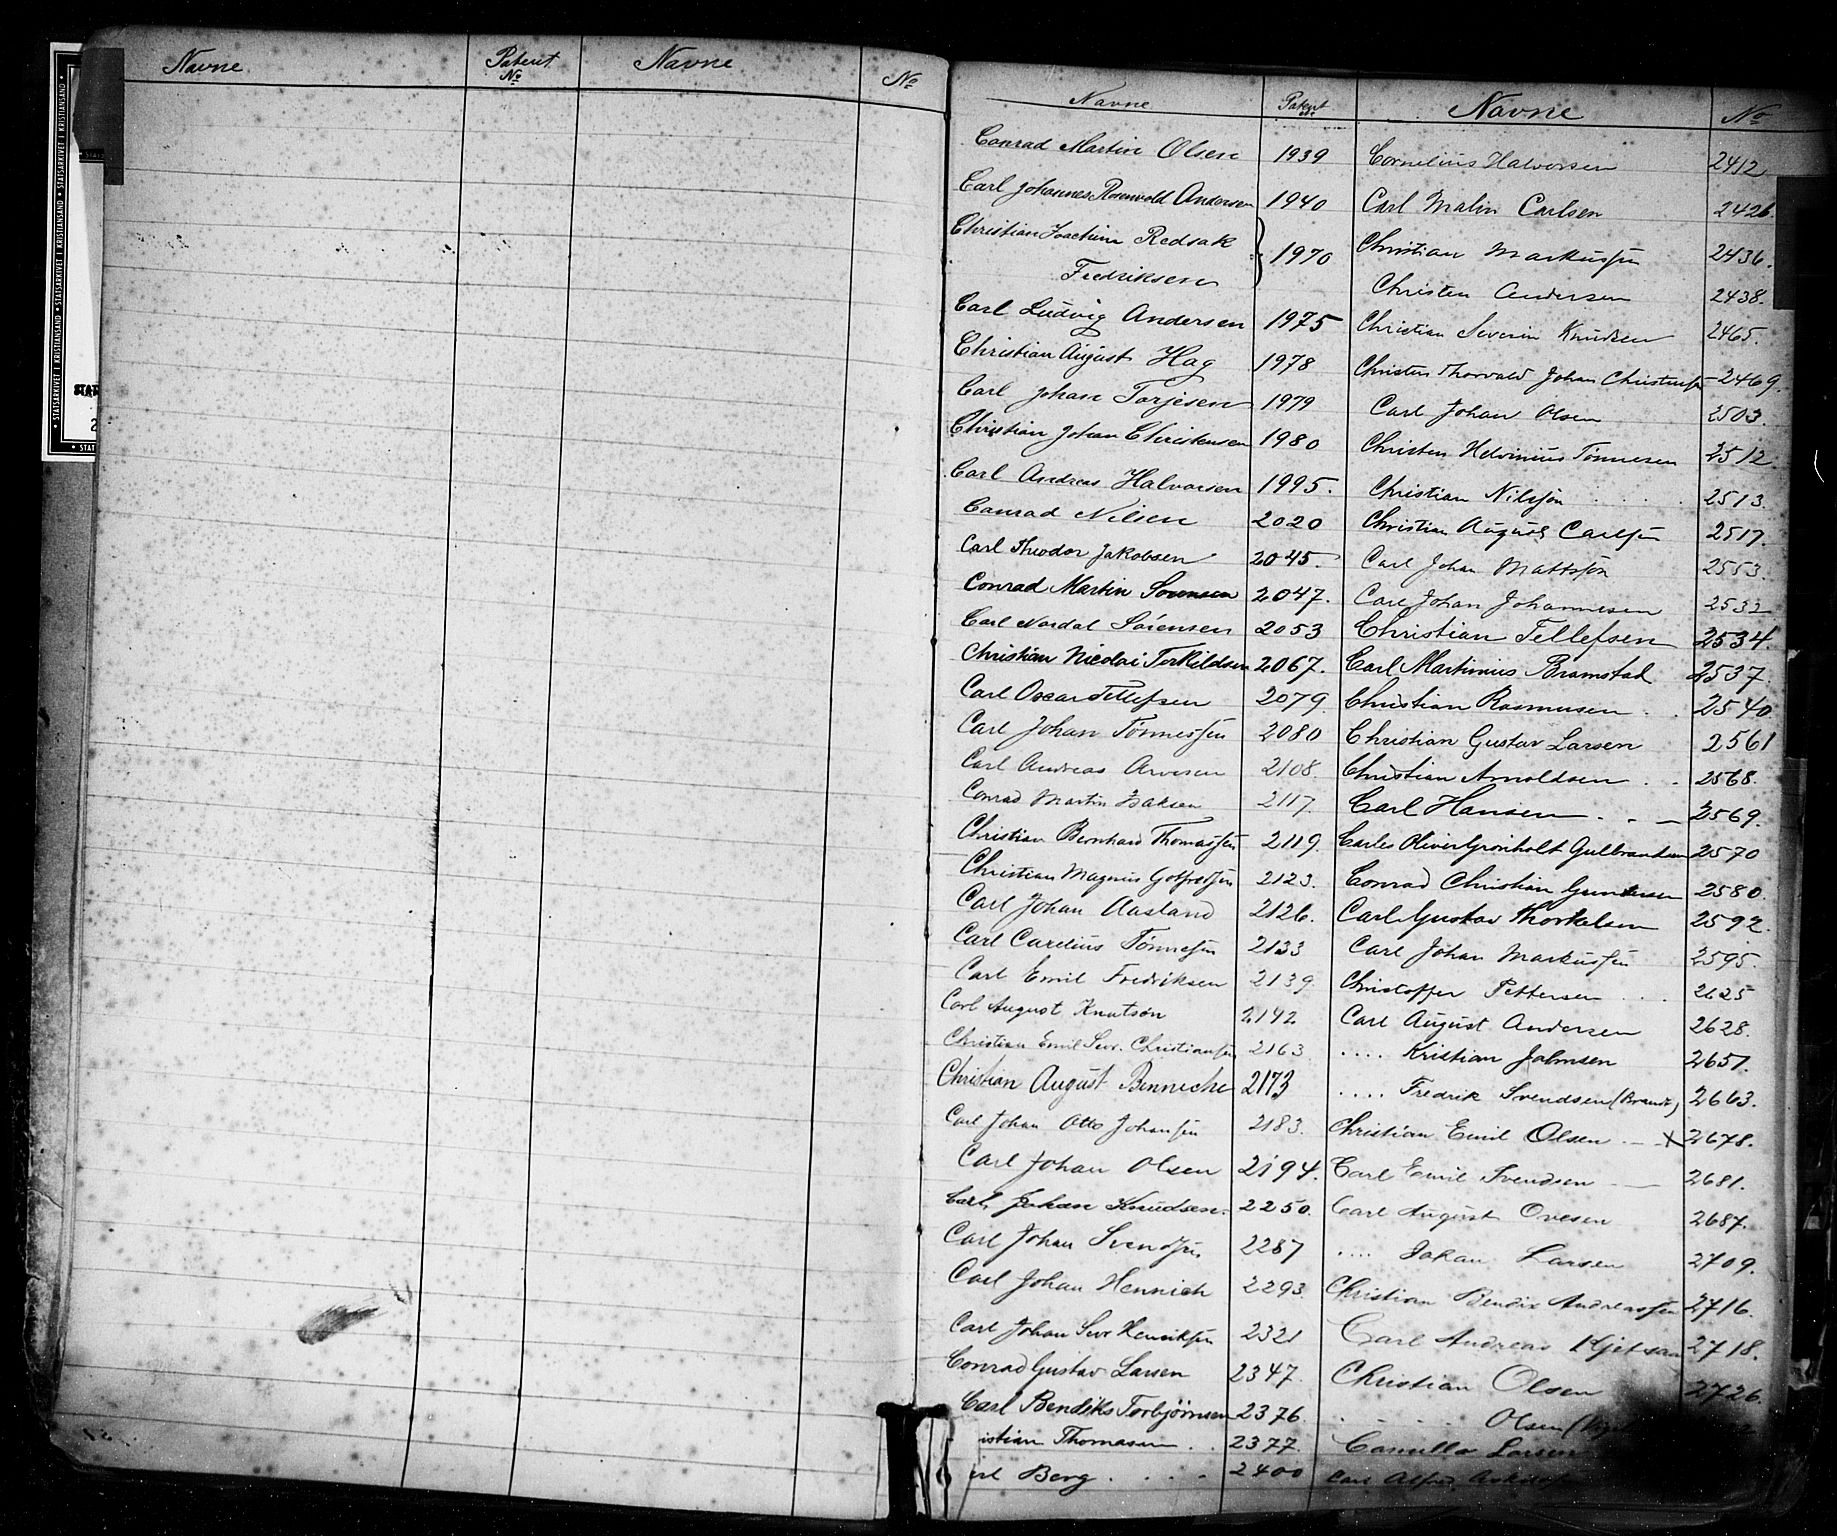 Navne Patent No Navne No
Navne Patent No Navne No
Conrad Martin Olsen 1939
Carl Johannes Rosenvold Andersen 1940
Christian Joachim Redsak
Fredriksen 1970
Carl Ludvig Andersen 1975
Christian August Hag 1978
Carl Johan Torjesen 1979
Christian Johan Christensen 1980
Carl Andreas Halvorsen 1995.
Conrad Nilsen 2020
Carl Theodor Jakobsen 2045.
Conrad Martin Sørensen 2047.
Carl Nordal Sørensen 2053
Christian Nicolai Torkildsen 2067.
Carl Oscar Tellefsen 2079
Carl Johan Tønnessen 2080
Carl Andreas Arvesen 2108.
Conrad Martin Isaksen 2117.
Christian Bernhard Thomassen 2119.
Christian Magnus Gotfredsen 2123.
Carl Johan Aasland 2126.
Carl Carelius Tønnesen 2133
Carl Emil Fredriksen 2139.
Carl August Knutsøn 2142
Christian Emil Sevr. Christiansen 2163
Christian August Binneche 2173
Carl Johan Otto Johansen 2183.
Carl Johan Olsen 2194.
Carl Johan Knudsen. 2250.
Carl Johan Svendsen 2287
Carl Johan Hennich 2293.
Carl Johan Sevr Henriksen 2321
Conrad Gustav Larsen 2347.
Carl Bendiks Torbjørnsen 2376.
istian Thomasen . . 2377.
rl Berg . . . . 2400
Cornelius Halvorsen 2412
Carl Malin Carlsen 2426.
Christian Markussen 2436.
Christen Andersen 2438.
Christian Severin Knudsen 2465.
Christen Thorvald Johan Christensen 2469.
Carl Johan Olsen 2503.
Christen Helvinius Tønnesen 2512.
Christian Nilsson . . . . 2513.
Christian August Carlsen 2517.
Carl Johan Mattsson 2553.
Carl Johan Johannesen 2532
Christian Tellefsen 2534.
Carl Martinius Bramstad 2537.
Christian Rasmusen . . 2540
Christian Gustav Larsen 2561
Christian Arnoldsen . . 2568.
Carl Hansen . . 2569.
Carles Oliver Grønholt Gulbrandsen 2570
Conrad Christian Gundersen 2580.
Carl Gustav Thorkelsen 2592.
Carl Johan Markussen 2595.
Christoffer Pettersen . . . 2625
Carl August Andersen 2628.
. . . . Kristian Johnsen 2651.
. . . . Fredrik Svendsen (Brandt) 2663.
Christian Emil Olsen X 2678.
Carl Emil Svendsen 2681.
Carl August Ovesen 2687.
. . . . Johan Larsen 2709.
Christian Bendix Andreassen 2716.
Carl Andreas Kjetsaa 2718.
Christian Olsen 2726.
. . . . Olsen
Camilla Larsen
Carl Alfred
STATSARKIVET I KRISTIANSAND • STATSARKIVET I KRISTIANSAND • STATSARKIVET I KRISTIANSAND